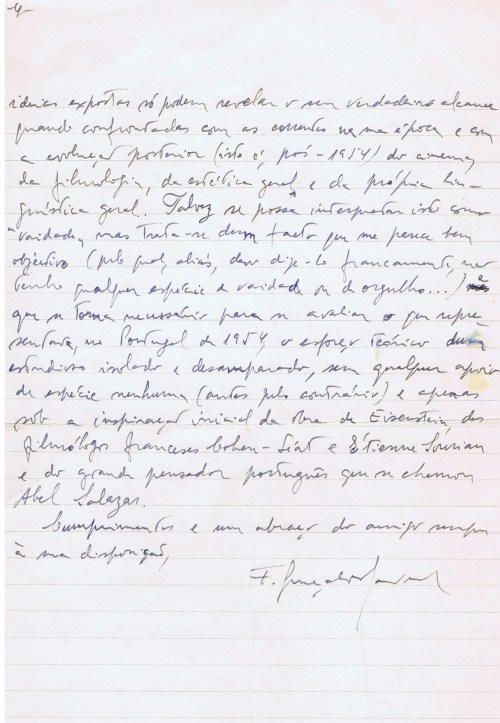 -4-
ideias expostas só podem revelar o seu verdadeiro alcance
quando confrontadas com as correntes na sua época e com
a evolução posterior (isto é, pós-1954) do cinema,
da filmologia, da estética geral e da própria lin-
guística geral. Talvez se possa interpretar isto como
vaidade, mas trata-se dum facto que me parece bem
objectivo (pelo qual, aliás, devo dizê-lo francamente, não
tenho qualquer espécie de vaidade ou de orgulho...) e
que se torna necessário para se avaliar o que repre-
sentava, no Portugal de 1954, o esforço teórico dum
estudioso isolado e desamparado, sem qualquer apoio
de espécie nenhuma (antes pelo contrário) e apenas
sob a inspiração inicial da obra de Eisenstein, dos
filmólogos franceses Cohen-Séat e Etienne Souriau
e do grande pensador português que se chamou
Abel Salazar.
Cumprimentos e um abraço do amigo sempre
à sua disposição,
F. Gonçalves